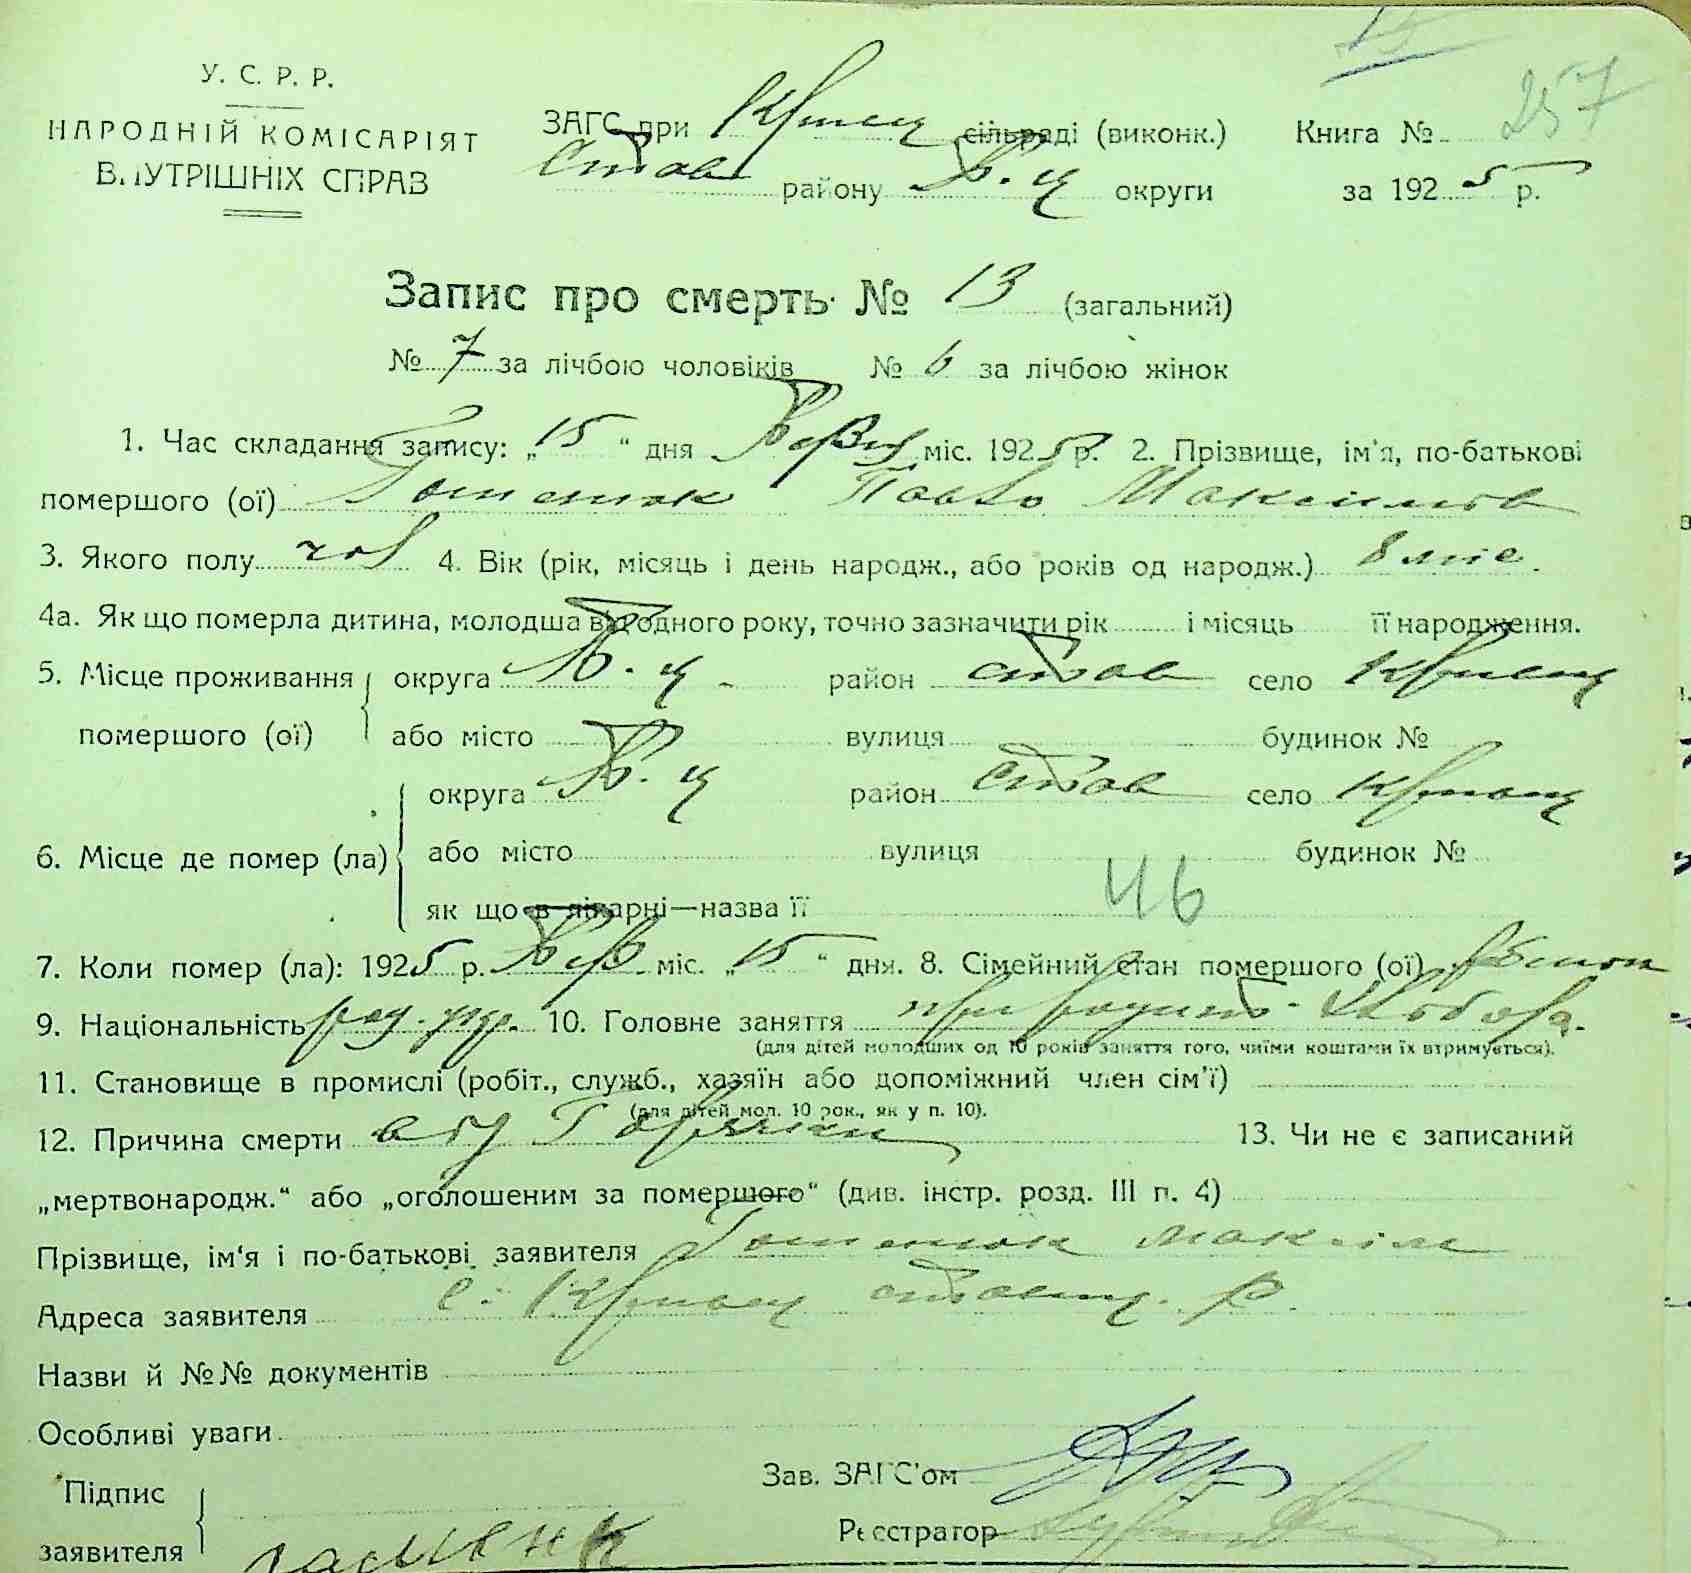 У. С. Р. Р.
НАРОДНІЙ КОМІСАРІЯТ
ВНУТРІШНІХ СПРАВ
ЗАГС при сільраді (виконк.) Книга № 257
Став району Б. Ц округи за 1925 р.
Запис про смерть № 13 (загальний)
№ 7 за лічбою чоловіків № 6 за лічбою жінок
1. Час складання запису: „15“ дня міс. 1925 р. 2. Прізвище, ім'я, по-батькові
помершого (ої) Павло Максимов
3. Якого полу чол 4. Вік (рік, місяць і день народж., або років од народж.) 8 міс.
4а. Як що померла дитина, молодша від одного року, точно зазначити рік і місяць її народження.
5. Місце проживання помершого (ої) округа Б. Ц район став село
або місто вулиця будинок №
6. Місце де помер (ла) округа Б. Ц район став село
або місто вулиця будинок №
як що в лікарні—назва її
46
7. Коли помер (ла): 1925 р. міс. „15“ дня. 8. Сімейний стан помершого (ої)
9. Національність 10. Головне заняття
(для дітей молодших од 10 років заняття того, чиїми коштами їх втримується).
11. Становище в промислі (робіт., служб., хазяїн або допоміжний член сім'ї)
(для дітей мол. 10 рок., як у п. 10).
12. Причина смерти від Горячки 13. Чи не є записаний
„мертвонародж.“ або „оголошеним за помершого“ (див. інстр. розд. III п. 4)
Прізвище, ім'я і по-батькові заявителя Максім
Адреса заявителя с. р.
Назви й №№ документів
Особливі уваги
Підпис заявителя
Зав. ЗАГС'ом
Реєстратор